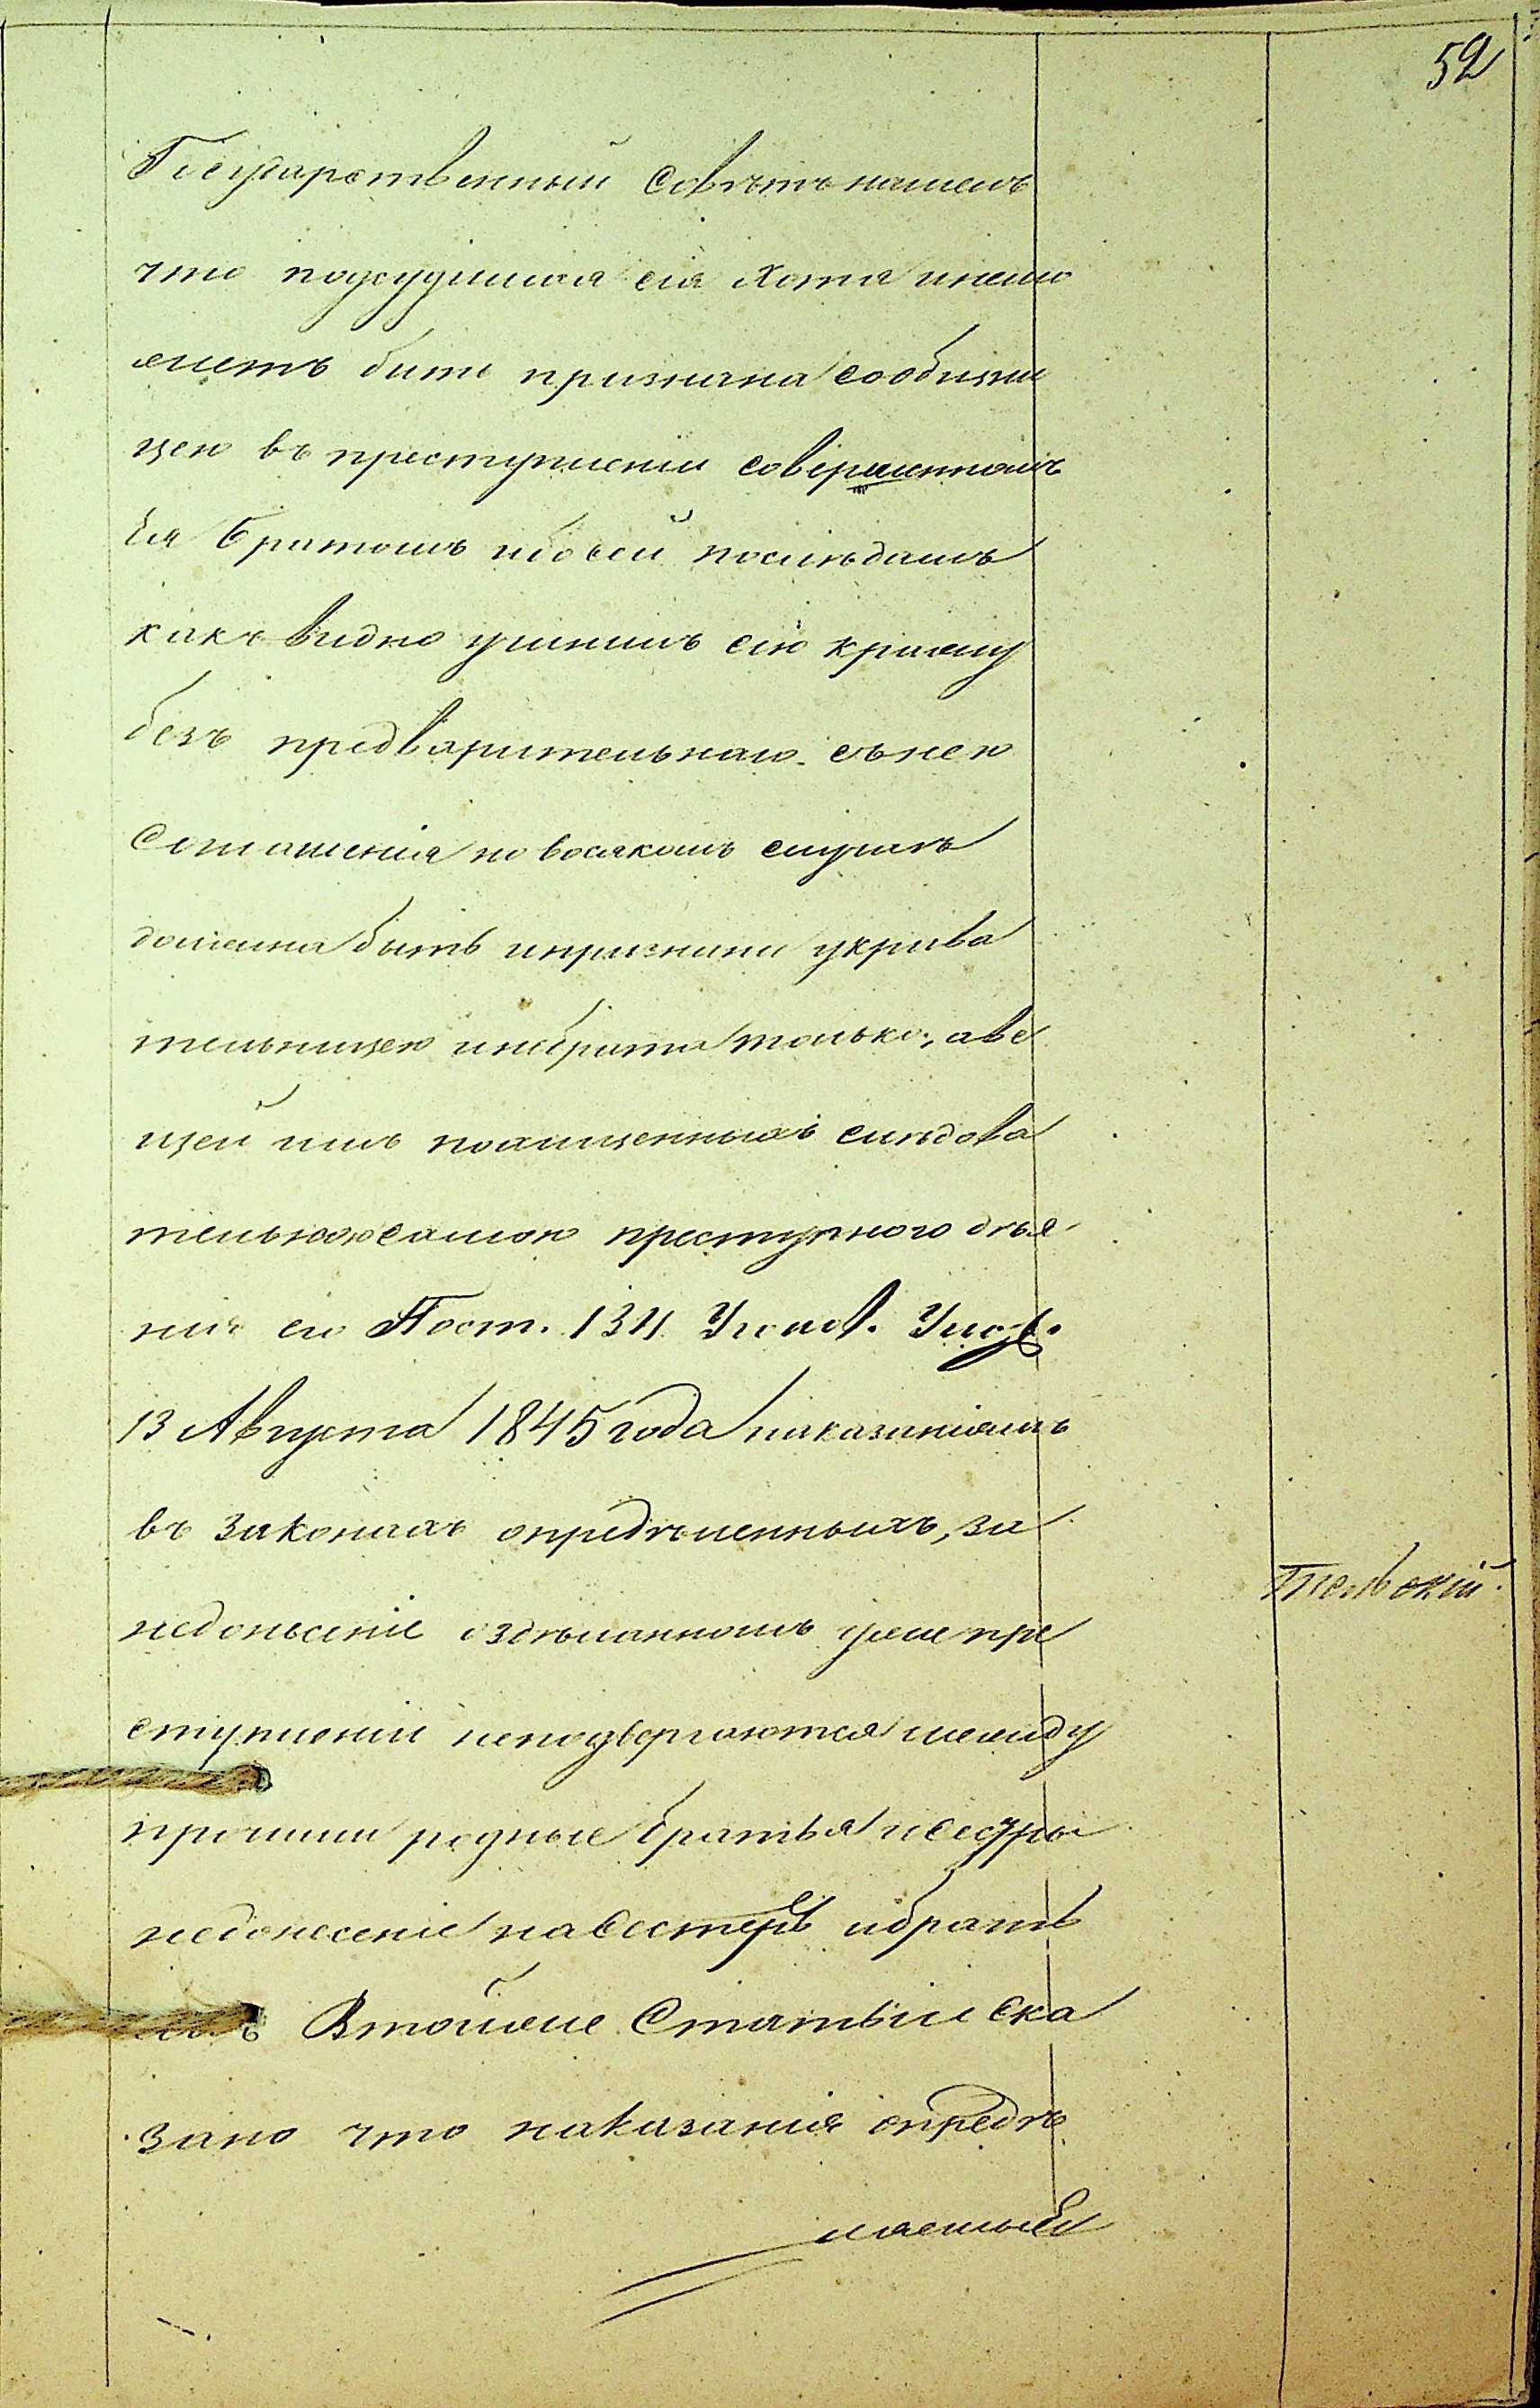 52
Государственный Советъ нашелъ
что подсудимая сія Хотя инемо
жетъ быть признана сообщни
цею въ преступленіи совершенномъ
Ея братомъ ибо сей послѣдамъ
какъ видно учинилъ сію кражу
безъ предварительнаго съ нею
Соглашенія но восякомъ случаѣ
должна быть и признана укрыва
тельницею и небрата только, аве
щей имъ похищенныхъ слѣдова
тельно самою преступного дѣя
нія его По ст. 134 Уголов. Улож.
13 Августа 1845 года наказаніямъ
въ Законахъ опредѣленныхъ, за
недонесеніе о здѣланномъ уже пре
ступленіи неподвергаются между
прочими родные братья и Сестры
недонесеніе на Сестеръ и брать
Втойже Статьи Ска
зано что наказанія опредѣ
ляемыя